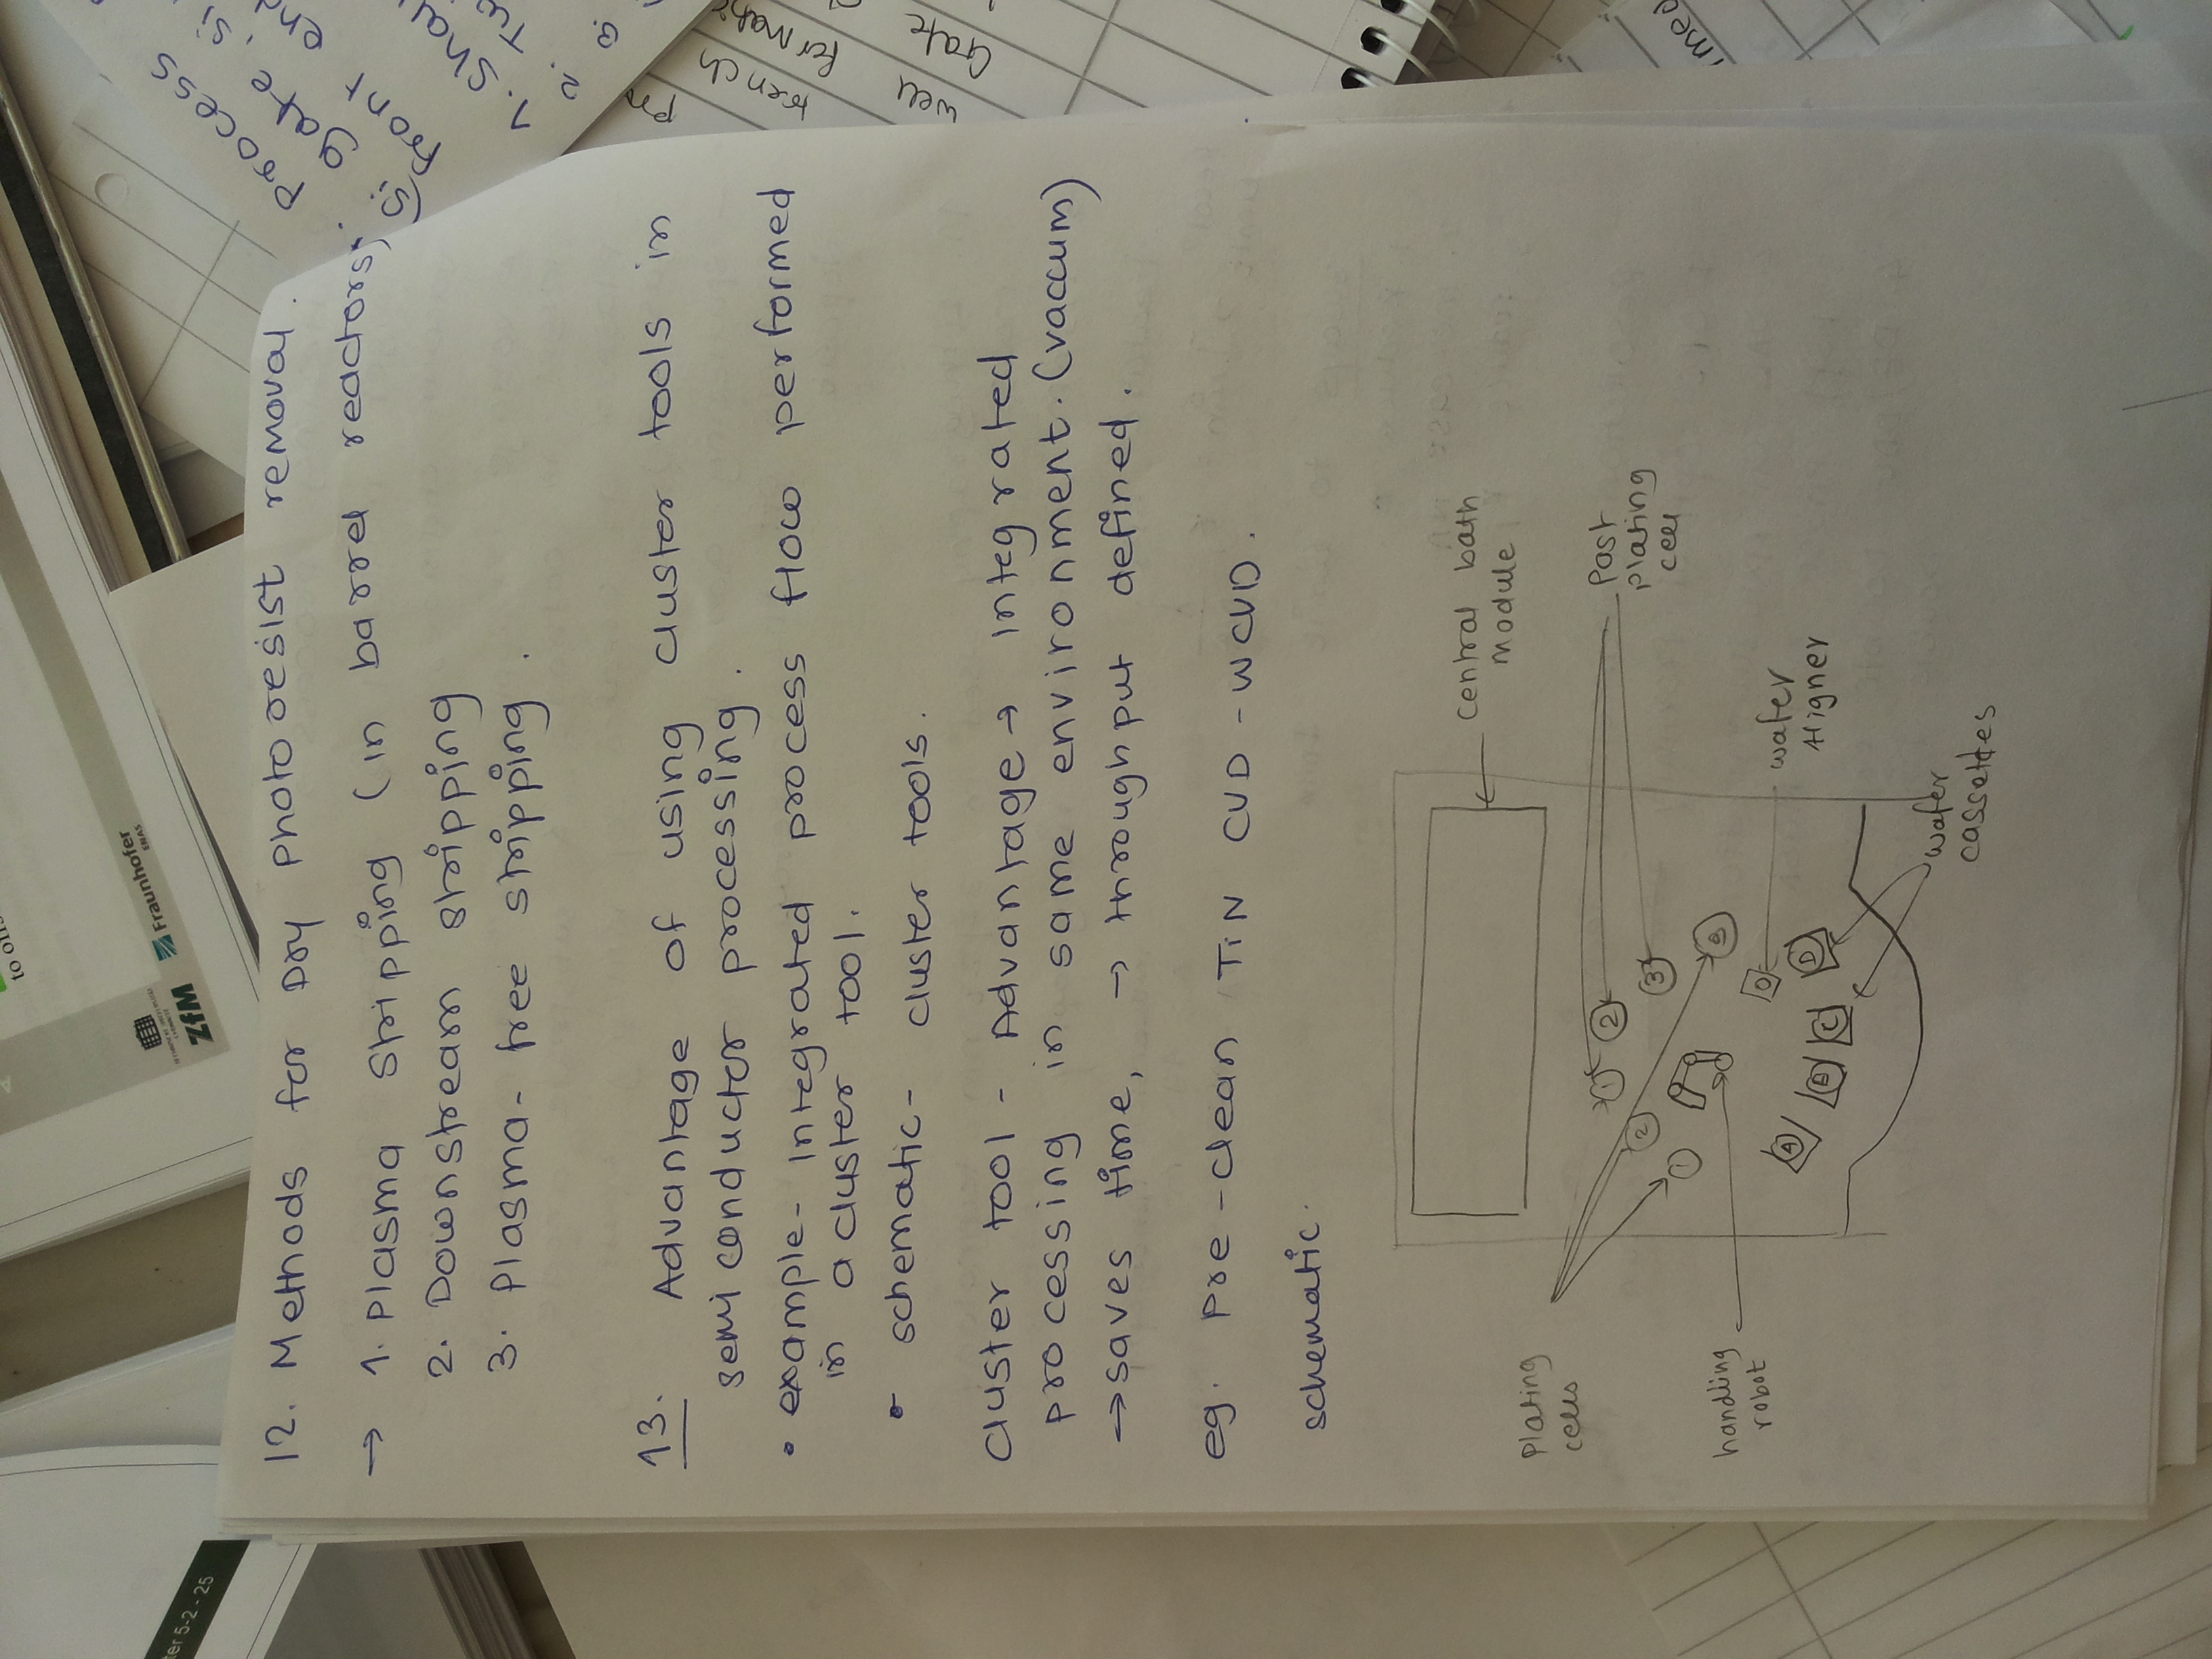 to
ter 5-2-25
TECHNISCHE UNIVERSITÄT
CHEMNITZ
ZfM
Fraunhofer
ENAS
12. Methods for Dry Photoresist removal.
→ 1. Plasma stripping (in barrel reactors)
2. Downstream stripping
3. Plasma-free stripping.
13. Advantage of using cluster tools in
semiconductor processing.
• example- Integrated process flow performed
in a cluster tool.
• schematic- cluster tools.
cluster tool - Advantage → Integrated
processing in same environment. (vaccum)
→ saves time, → throughput defined.
eg. Pre-clean TiN CVD - WCVD.
schematic.
central bath
module
Plating
cells
1 2
Post
plating
cell
2
3
1
3
handling
robot
wafer
Aligner
A B C D
wafer
cassettes
Process
(Si gate
Si
front end
1. Shal
2. Tw
3.
trench
well formatio
Gate